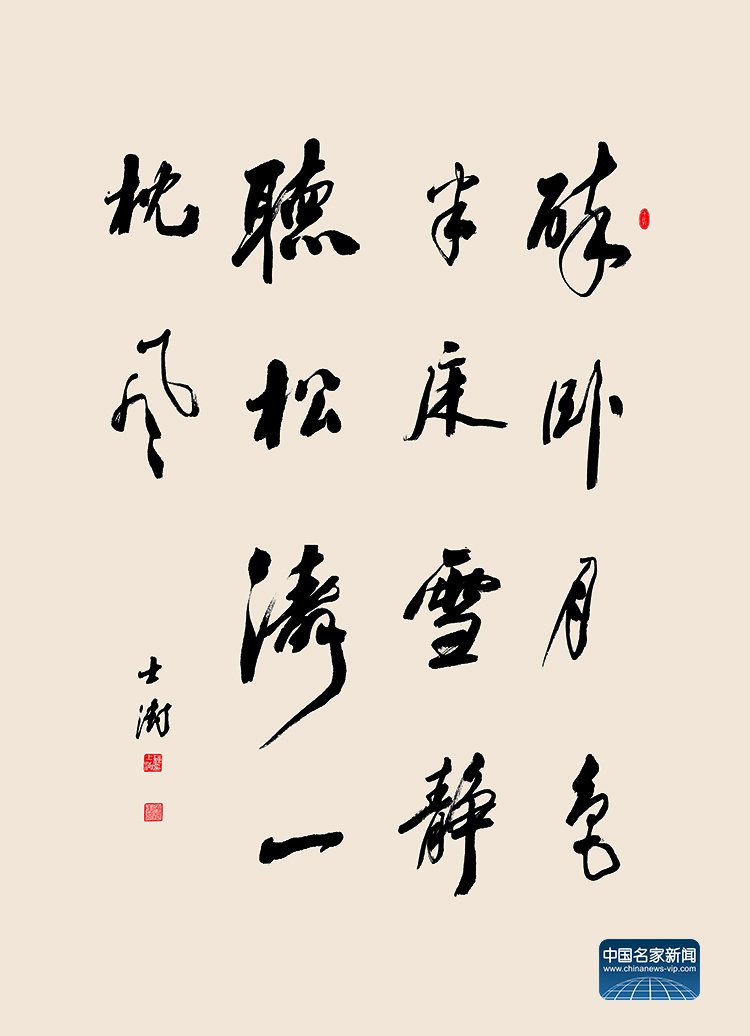 醉卧月色
半床雪静
聽松濤一
枕风
士澍
中国名家新闻
www.chinanews-vip.com